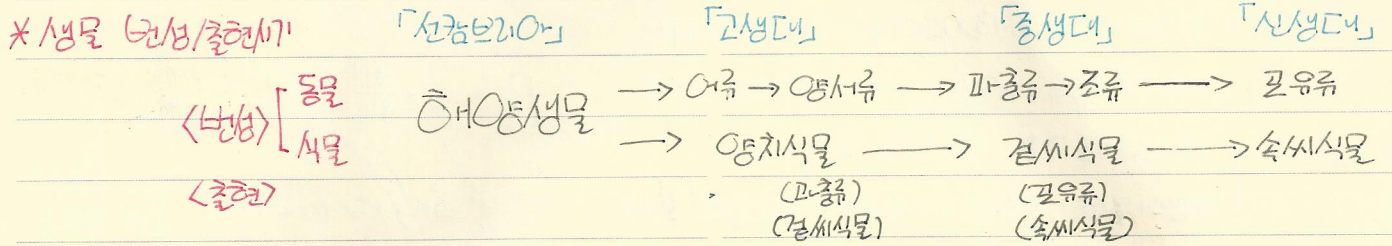 * 생물 번성/출현시기 「선캄브리아」 「고생대」 「중생대」 「신생대」
<번성> [ 동물 해양생물 → 어류 → 양서류 → 파충류 → 조류 → 포유류
식물 → 양치식물 → 겉씨식물 → 속씨식물
<출현> (파충류) (포유류)
(겉씨식물) (속씨식물)